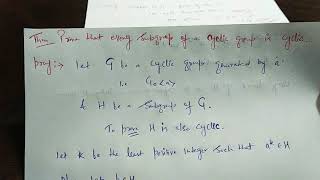 Thm Prove that every subgroup of a cyclic group is cyclic.
proof:→ let G be a cyclic group generated by a.
i.e G=<a>
& H be a subgroup of G.
To prove H is also cyclic.
let K be the least positive integer such that aᵏ ∈ H
let h ∈ H